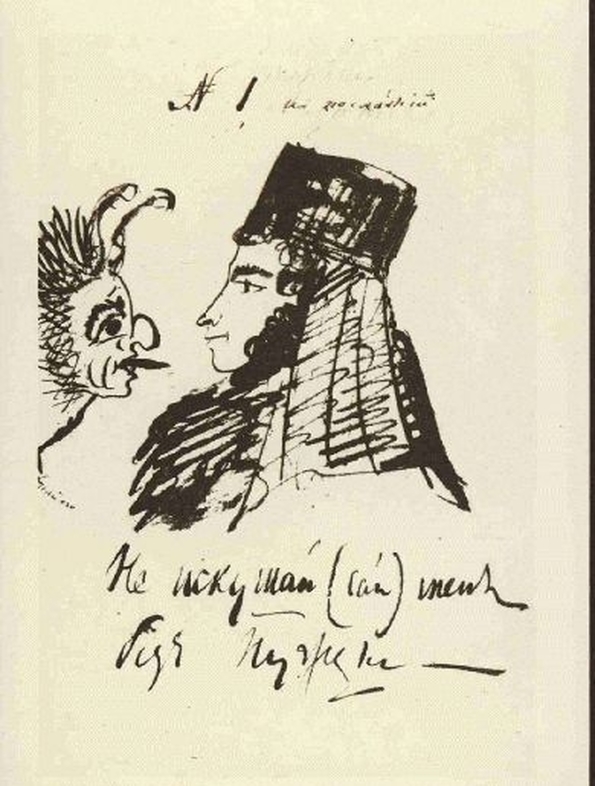 № 1
Не искушай (сай) меня
безъ нужды —